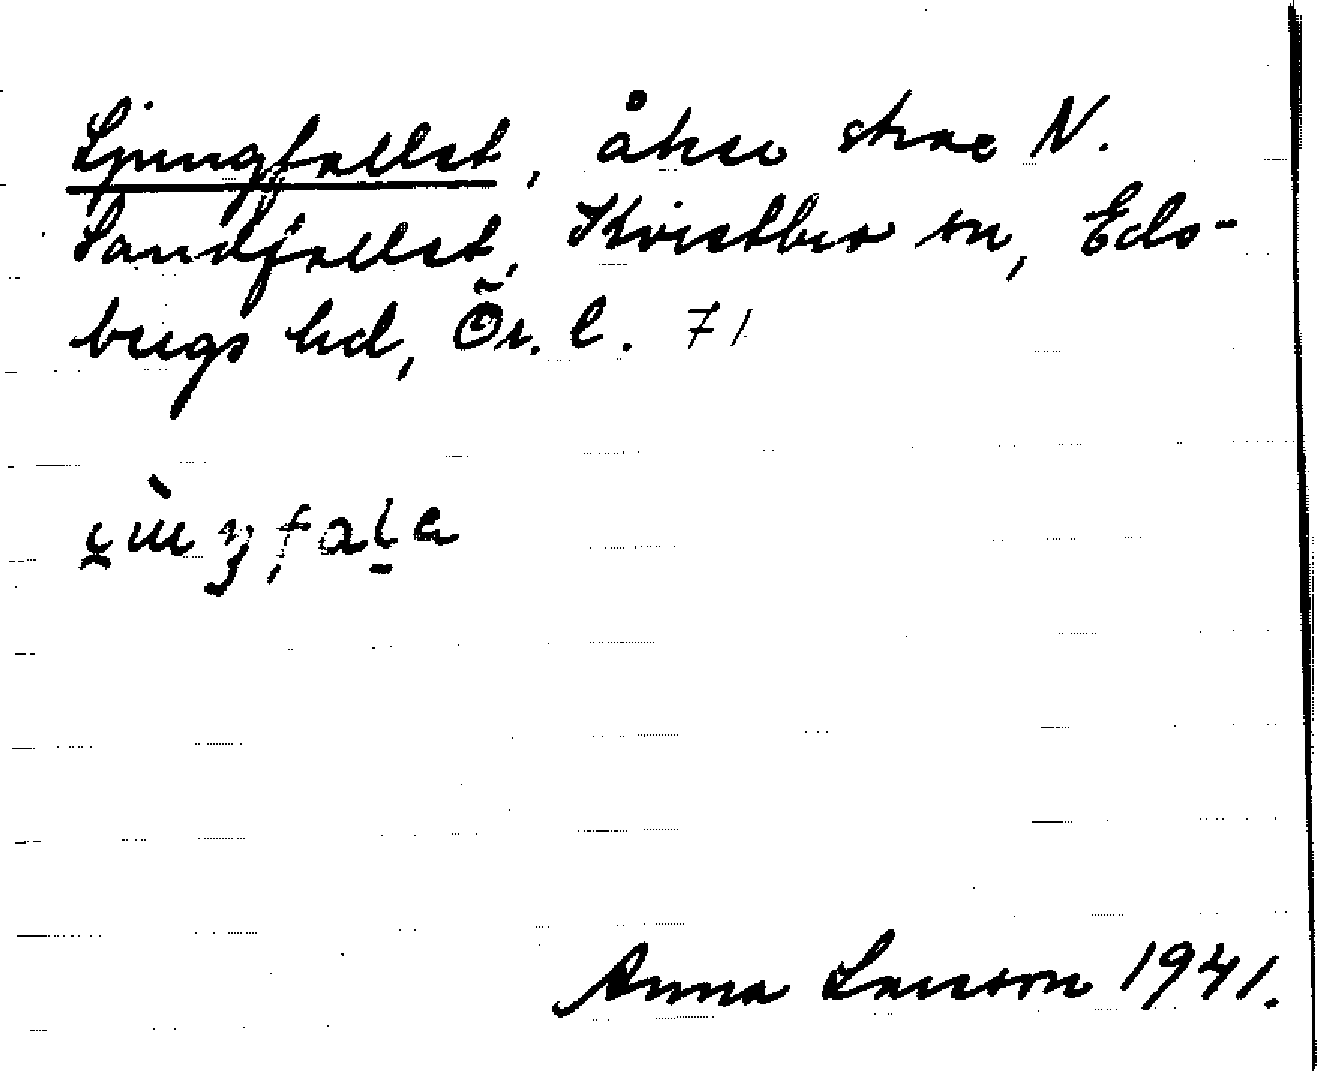 Ljungfallet, åker strax N.
Sandfallet, Kvistbro sn, Eds-
bergs hd, Ör. l. 71
Anna Larsson 1941.